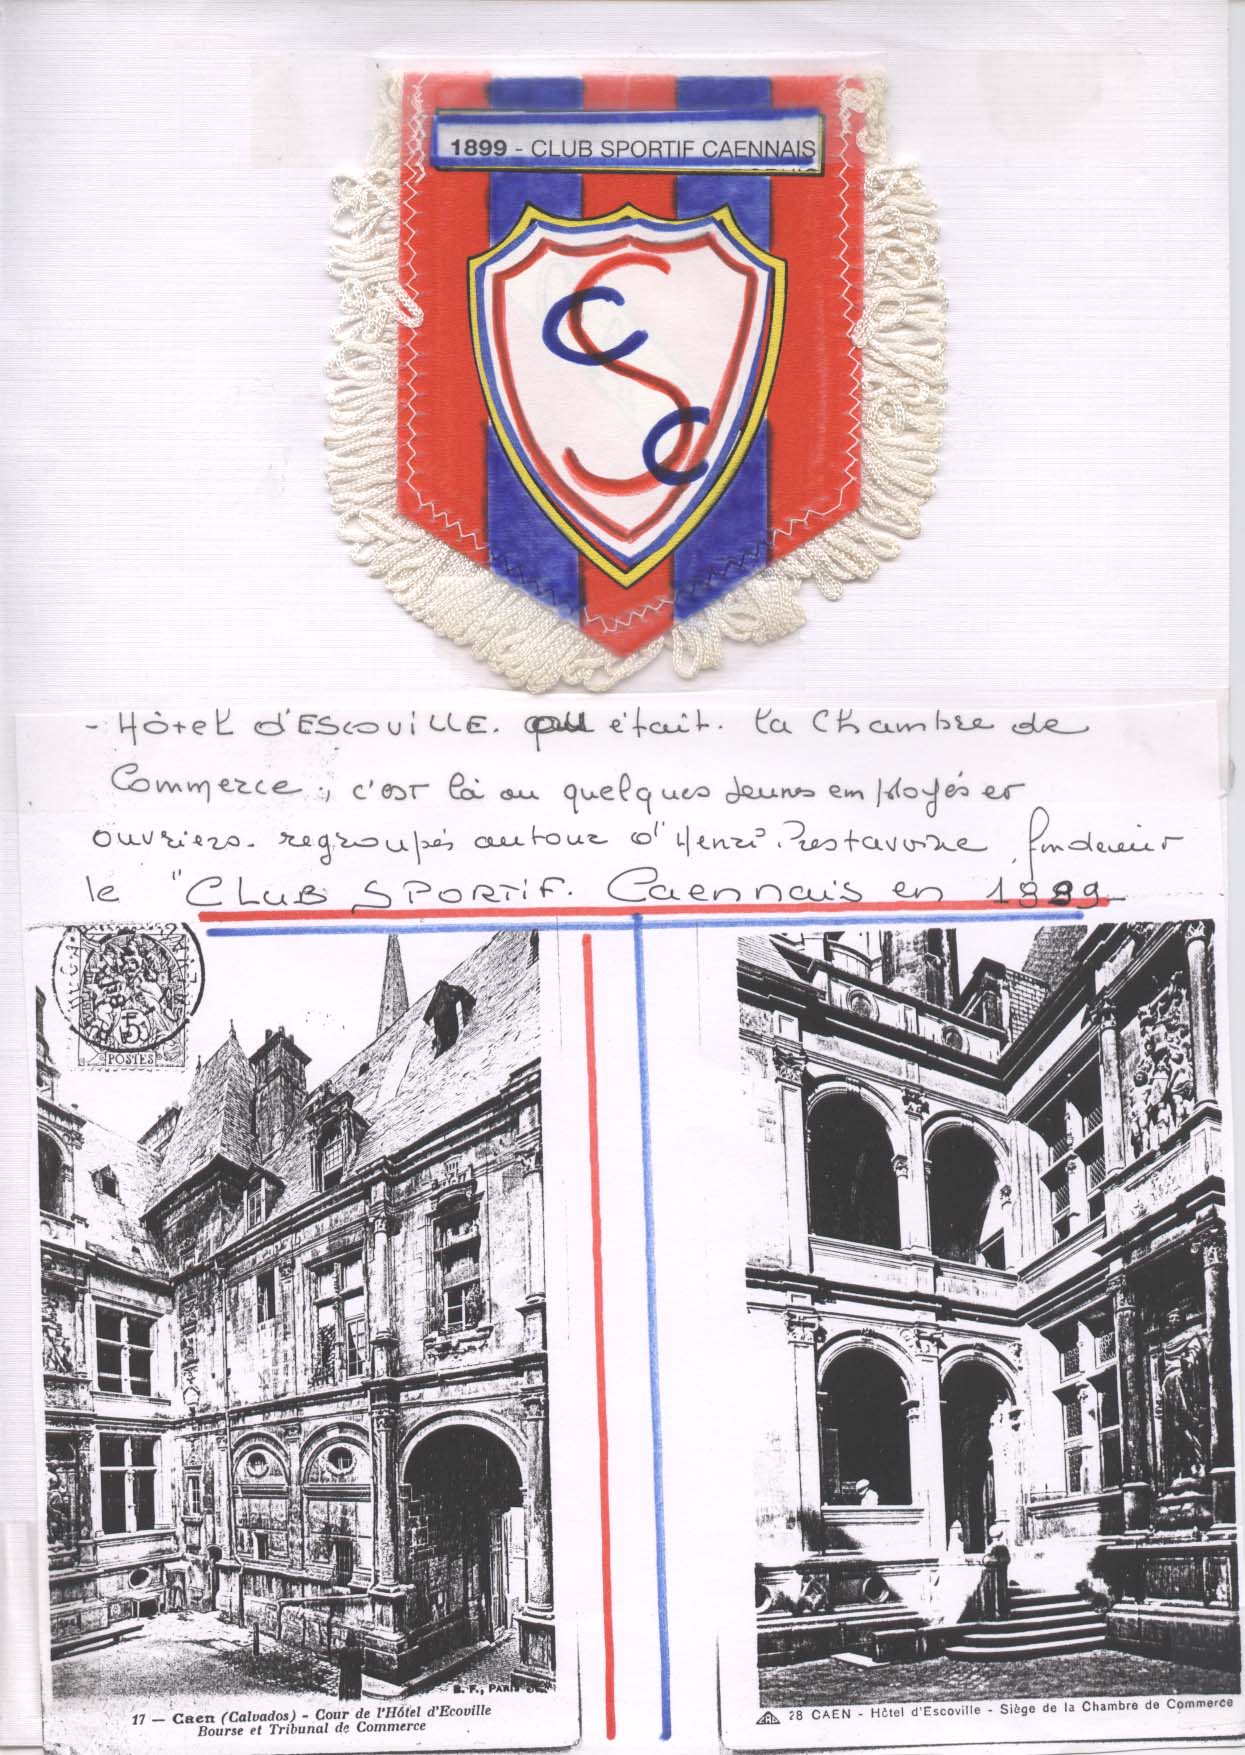 1899 - CLUB SPORTIF CAENNAIS
CSC
- HôteL d'EScoviLLE. où était. la Chambre de
Commerce, c'est là ou quelques Jeunes employés et
ouvriers. regroupés autour d'Henri. Prestavoine fondèrent
le "CLUB SPORTIF. Caennais en 1899
5
POSTES
E. F., PARIS
17 — Caen (Calvados) - Cour de l'Hôtel d'Ecoville
Bourse et Tribunal de Commerce
28 CAEN - Hôtel d'Escoville - Siège de la Chambre de Commerce